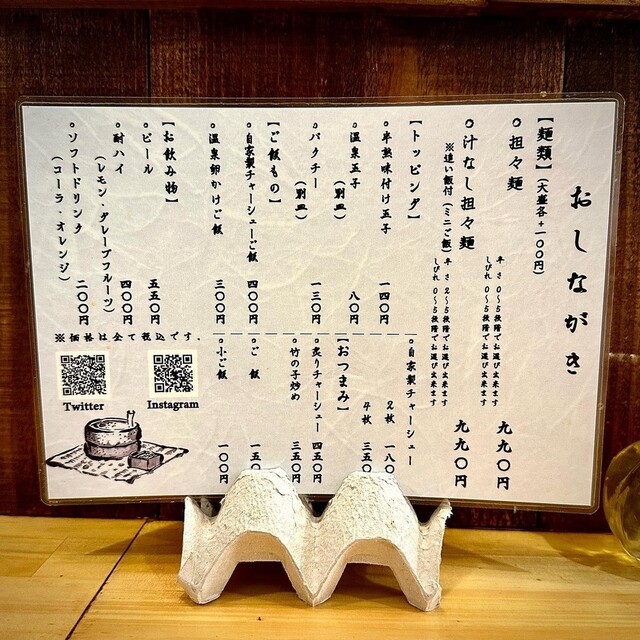 おしながき
【麺類】(大盛各+一〇〇円)
◎担々麺
辛さ 0〜5段階でお選び出来ます
しびれ 0〜5段階でお選び出来ます
九九〇円
◎汁なし担々麺
※追い飯付(ミニご飯)
辛さ 2〜5段階でお選び出来ます
しびれ 0〜5段階でお選び出来ます
九九〇円
【トッピング】
◎半熟味付け玉子
一四〇円
◎温泉玉子
(別皿)
八〇円
◎パクチー
(別皿)
一三〇円
◎自家製チャーシュー
2枚 一八〇円
4枚 三五〇円
【おつまみ】
◎炙りチャーシュー
四五〇円
◎竹の子炒め
三五〇円
【ご飯もの】
◎自家製チャーシューご飯
四〇〇円
◎温泉卵かけご飯
三〇〇円
◎ご飯
一五〇円
◎小ご飯
一〇〇円
【お飲み物】
◎ビール
五五〇円
◎酎ハイ
(レモン・グレープフルーツ)
四〇〇円
◎ソフトドリンク
(コーラ・オレンジ)
二〇〇円
※価格は全て税込です.
Twitter
Instagram